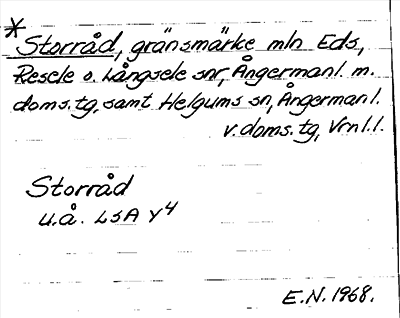 *
Storråd, gränsmärke mln Eds,
Resele o. Långsele snr, Ångermanl. m.
doms.tg, samt Helgums sn, Ångermanl.
v. doms. tg, Vrnl.l.
Storråd
u.å. LSA Y4
E.N. 1968.